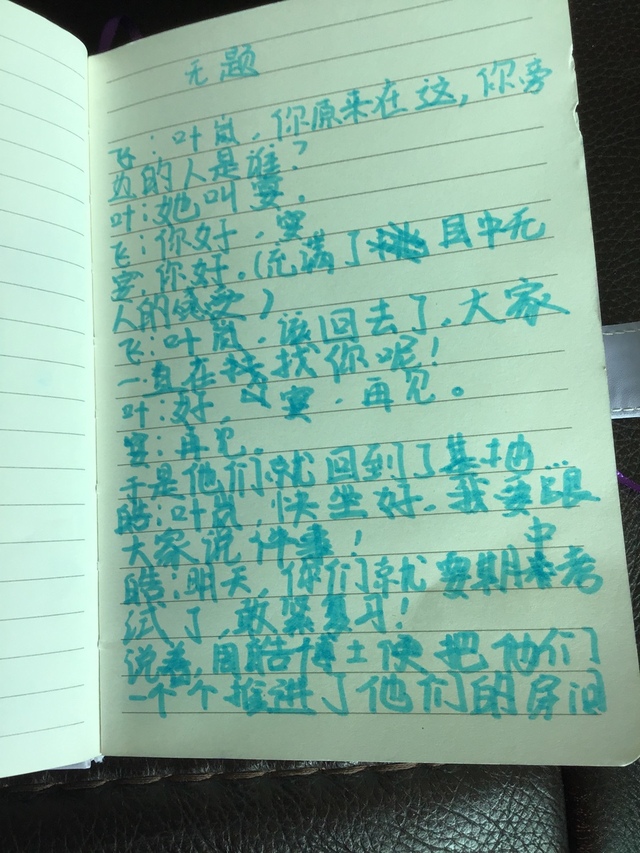 无题
飞:叶岚,你原来在这,你旁
边的人是谁?
叶:她叫雯。
飞:你好,雯
雯,你好。(充满了 目中无
人的感觉)
飞:叶岚,该回去了,大家
一直在找找你呢!
叶:好,雯,再见。
雯:再见。
于是他们就回到了基地…
皓:叶岚,快坐好,我要跟
大家说件事!
皓:明天,你们就要期中考
试了,敢紧复习!
说着,周皓博士便把他们
一个个推进了他们的房间